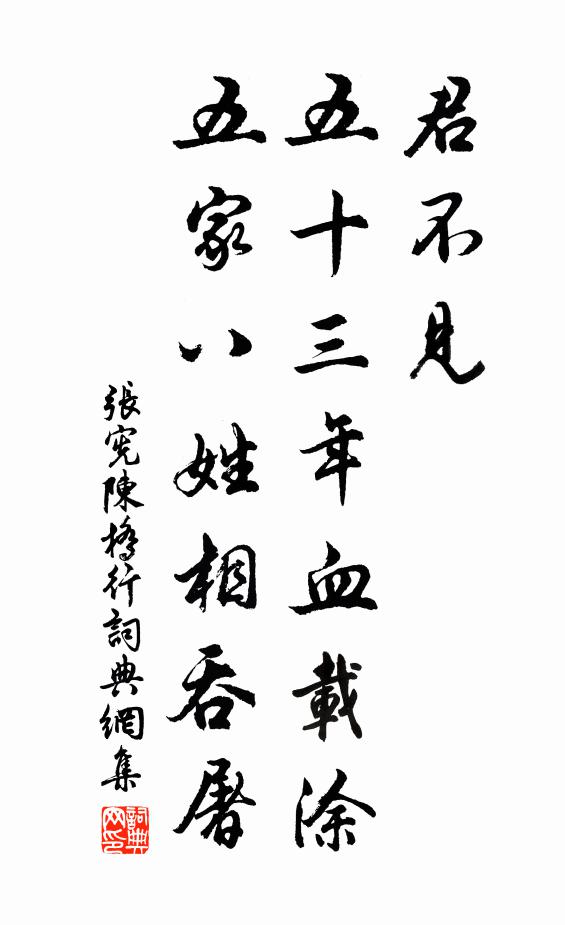 君不見
五十三年血載涂
五家八姓相吞屠
張憲陳橋行詞典網集
詞典網印